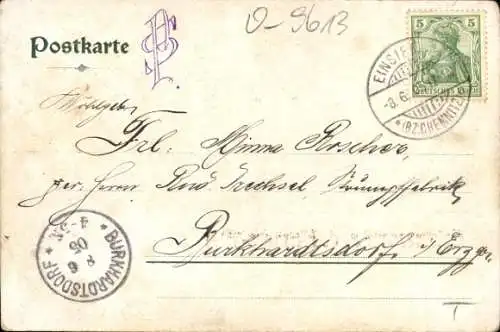 O-9613
Postkarte
5
DEUTSCHES REICH
EINSIE
8.6.
*(BZ. CHEMNITZ)
Wohlgeb.
Frl. Minna Roscher,
per. Herrn Rud. Drechsel, Strumpffabrik
Burkhardtsdorf i/ Erzgeb.
* BURKHARDTSDORF *
8 6
05
T